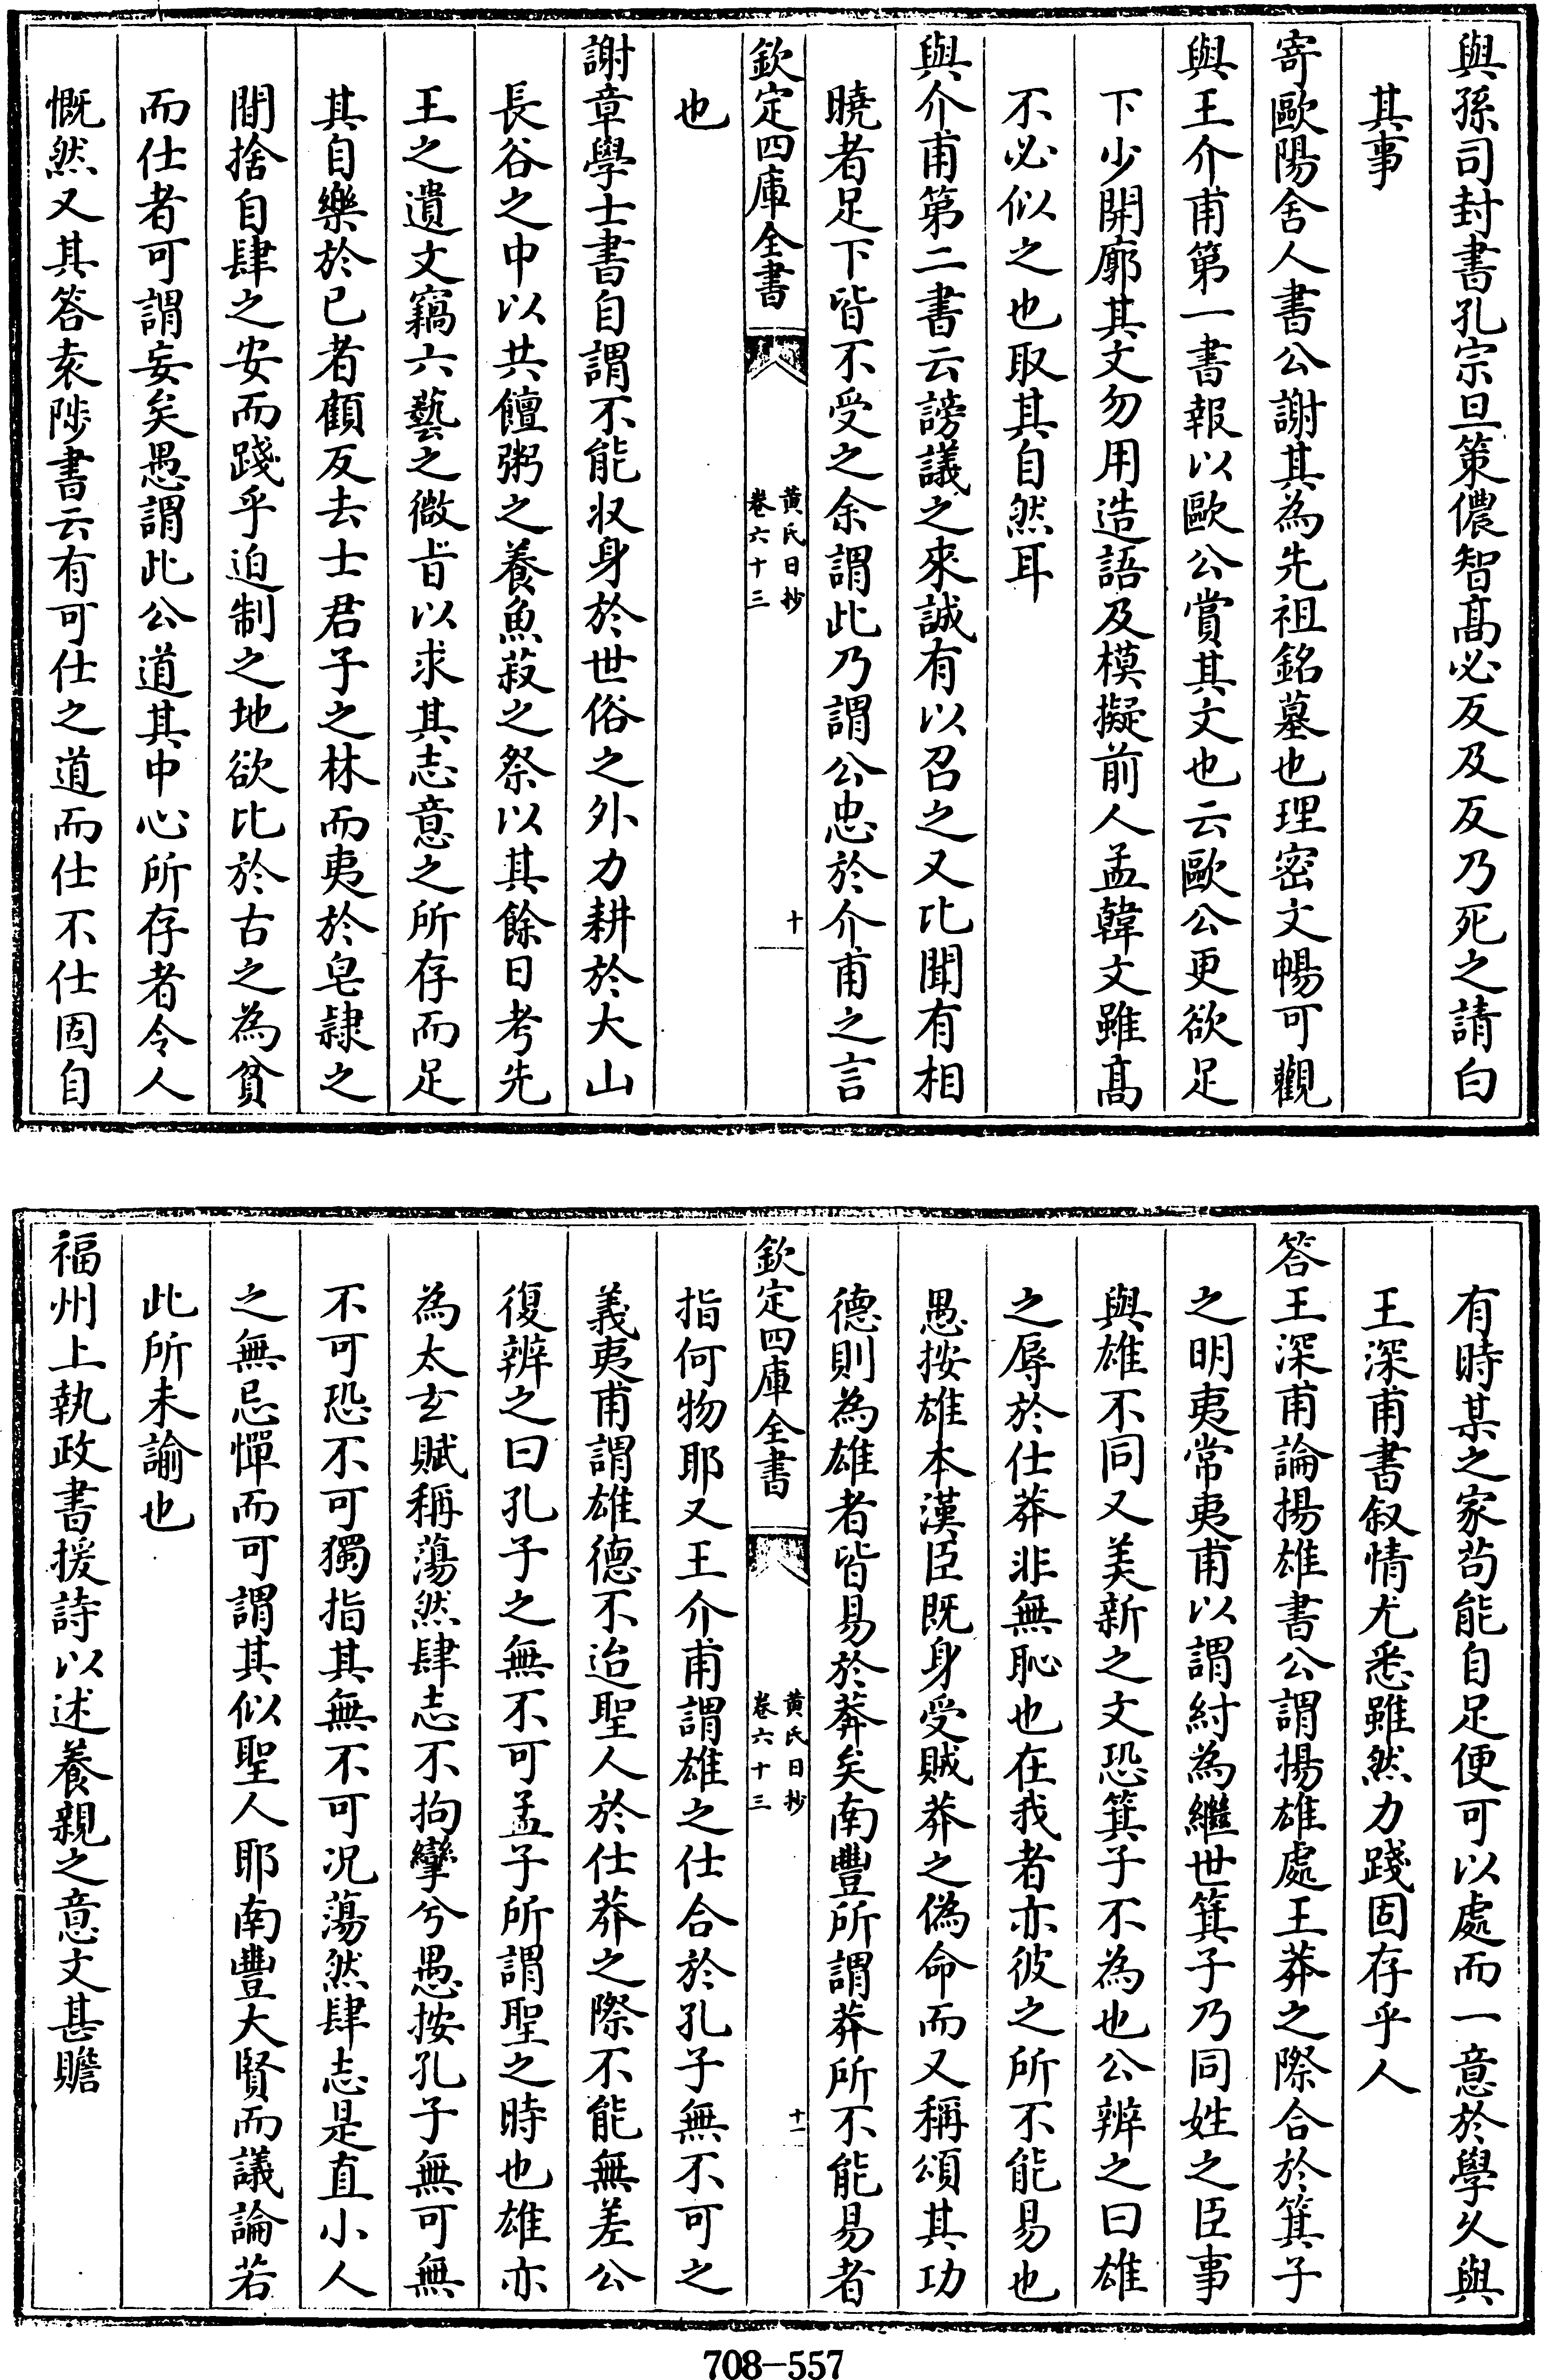 與孫司封書孔宗旦策儂智髙必反及反乃死之請白
其事
寄歐陽舍人書公謝其為先祖銘墓也理密文暢可觀
與王介甫第一書報以歐公賞其文也云歐公更欲足
下少開廓其文勿用造語及模擬前人孟韓文雖髙
不必似之也取其自然耳
與介甫第二書云謗議之來誠有以召之又比聞有相
曉者足下皆不受之余謂此乃謂公忠於介甫之言
欽定四庫全書
黃氏日抄
卷六十三
十
也
謝章學士書自謂不能収身於世俗之外力耕於大山
長谷之中以共饘粥之養魚菽之祭以其餘日考先
王之遺文竊六藝之微㫖以求其志意之所存而足
其自樂於已者顧反去士君子之林而夷於皂隷之
間捨自肆之安而踐乎迫制之地欲比於古之為貧
而仕者可謂妄矣愚謂此公道其中心所存者令人
慨然又其答袁陟書云有可仕之道而仕不仕固自
有時某之家苟能自足便可以處而一意於學久與
王深甫書叙情尤悉雖然力踐固存乎人
答王深甫論揚雄書公謂揚雄處王莽之際合於箕子
之明夷常夷甫以謂紂為繼世箕子乃同姓之臣事
與雄不同又美新之文恐箕子不為也公辨之曰雄
之辱於仕莽非無恥也在我者亦彼之所不能易也
愚按雄本漢臣既身受賊莽之偽命而又稱頌其功
德則為雄者皆易於莽矣南豐所謂莽所不能易者
欽定四庫全書
黃氏日抄
卷六十三
十一
指何物耶又王介甫謂雄之仕合於孔子無不可之
義夷甫謂雄德不迨聖人於仕莽之際不能無差公
復辨之曰孔子之無不可孟子所謂聖之時也雄亦
為太玄賦稱蕩然肆志不拘攣兮愚按孔子無可無
不可恐不可獨指其無不可况蕩然肆志是直小人
之無忌憚而可謂其似聖人耶南豐大賢而議論若
此所未諭也
福州上執政書援詩以述養親之意文甚贍
708-557